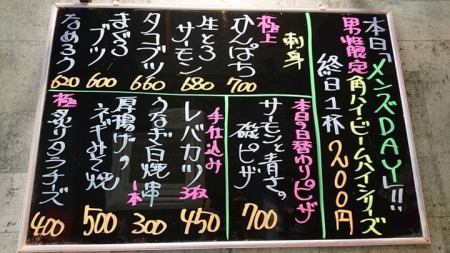 本日メンズDAY!!
男性限定角ハイ・ビームハイシリーズ
終日1杯200円
刺身
極上
かんぱち
700
生とろサーモン
680
タコブツ
660
まぐろブツ
600
なめろう
620
本日の日替わりピザ
サーモンと青さの磯ピザ
700
手仕込み
レバカツ
3枚
450
うなぎ白焼串
1本
300
厚揚げのネギみそ焼
500
極
炙りタラチーズ
400